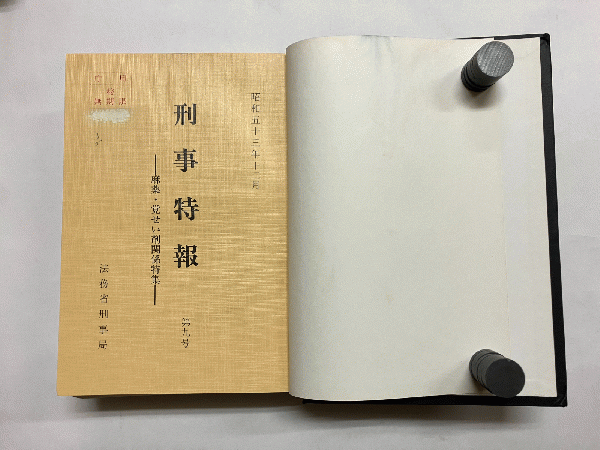 昭和五十三年十二月
刑事特報
―麻薬・覚せい剤関係特集―
第九号
法務省刑事局